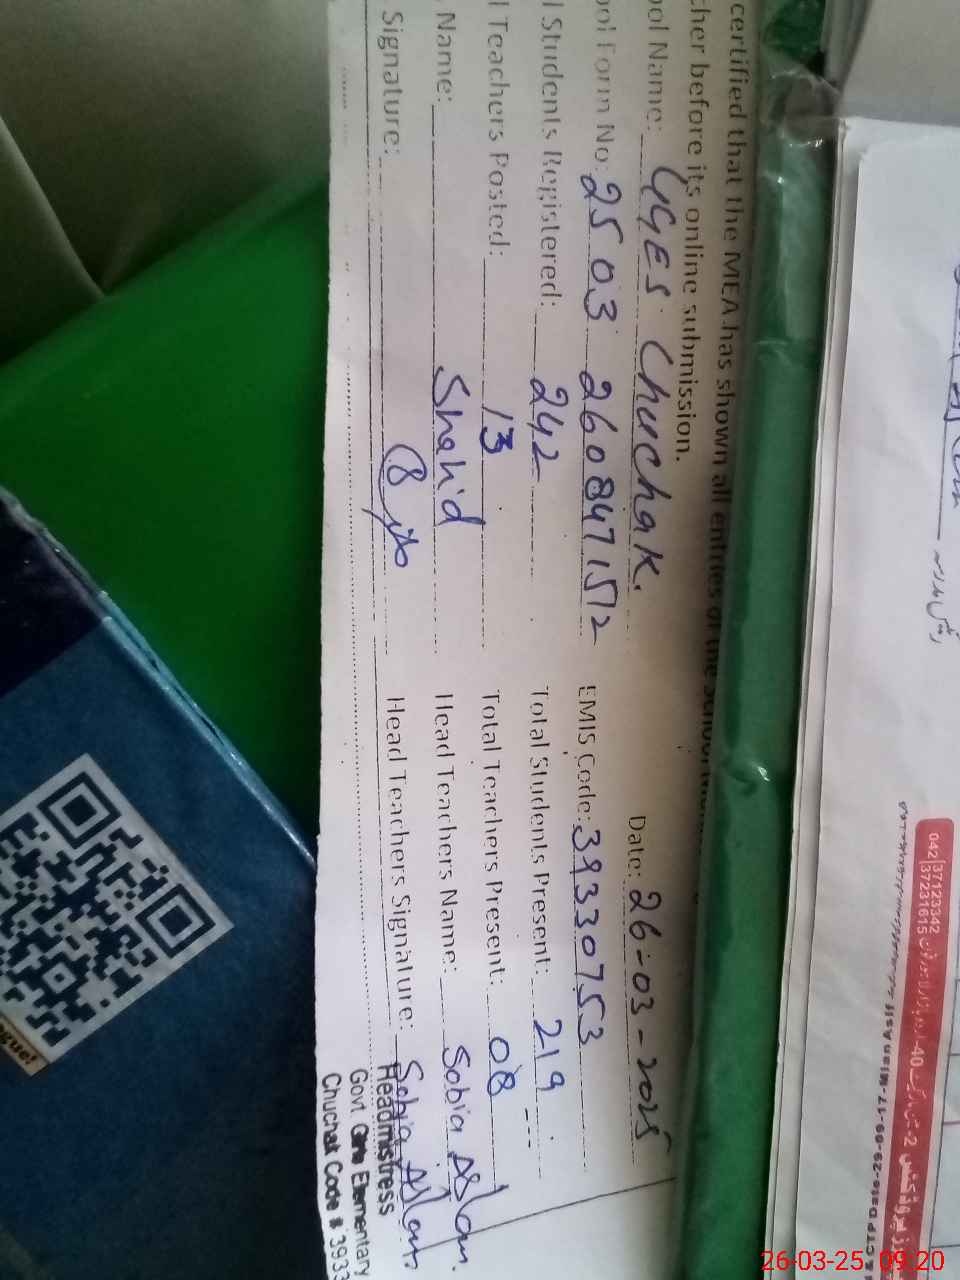 certified that the MEA has shown all entries of the
cher before its online submission.
ool Name: GGES Chuchak. Date: 26-03-2025
ool Form No: 2503 2608471512 EMIS Code: 39330753
l Students Registered: 242 Total Students Present: 219
l Teachers Posted: 13 Total Teachers Present: 08
Name: Shahid Head Teachers Name: Sobia Aslam.
Signature: Head Teachers Signature: Sobia Aslam
Headmistress
Govt. Girls Elementary
Chuchak Code # 3933
042 37123342
37231615
CTP Date-29-09-17-Mian Asif
26-03-25 09:20